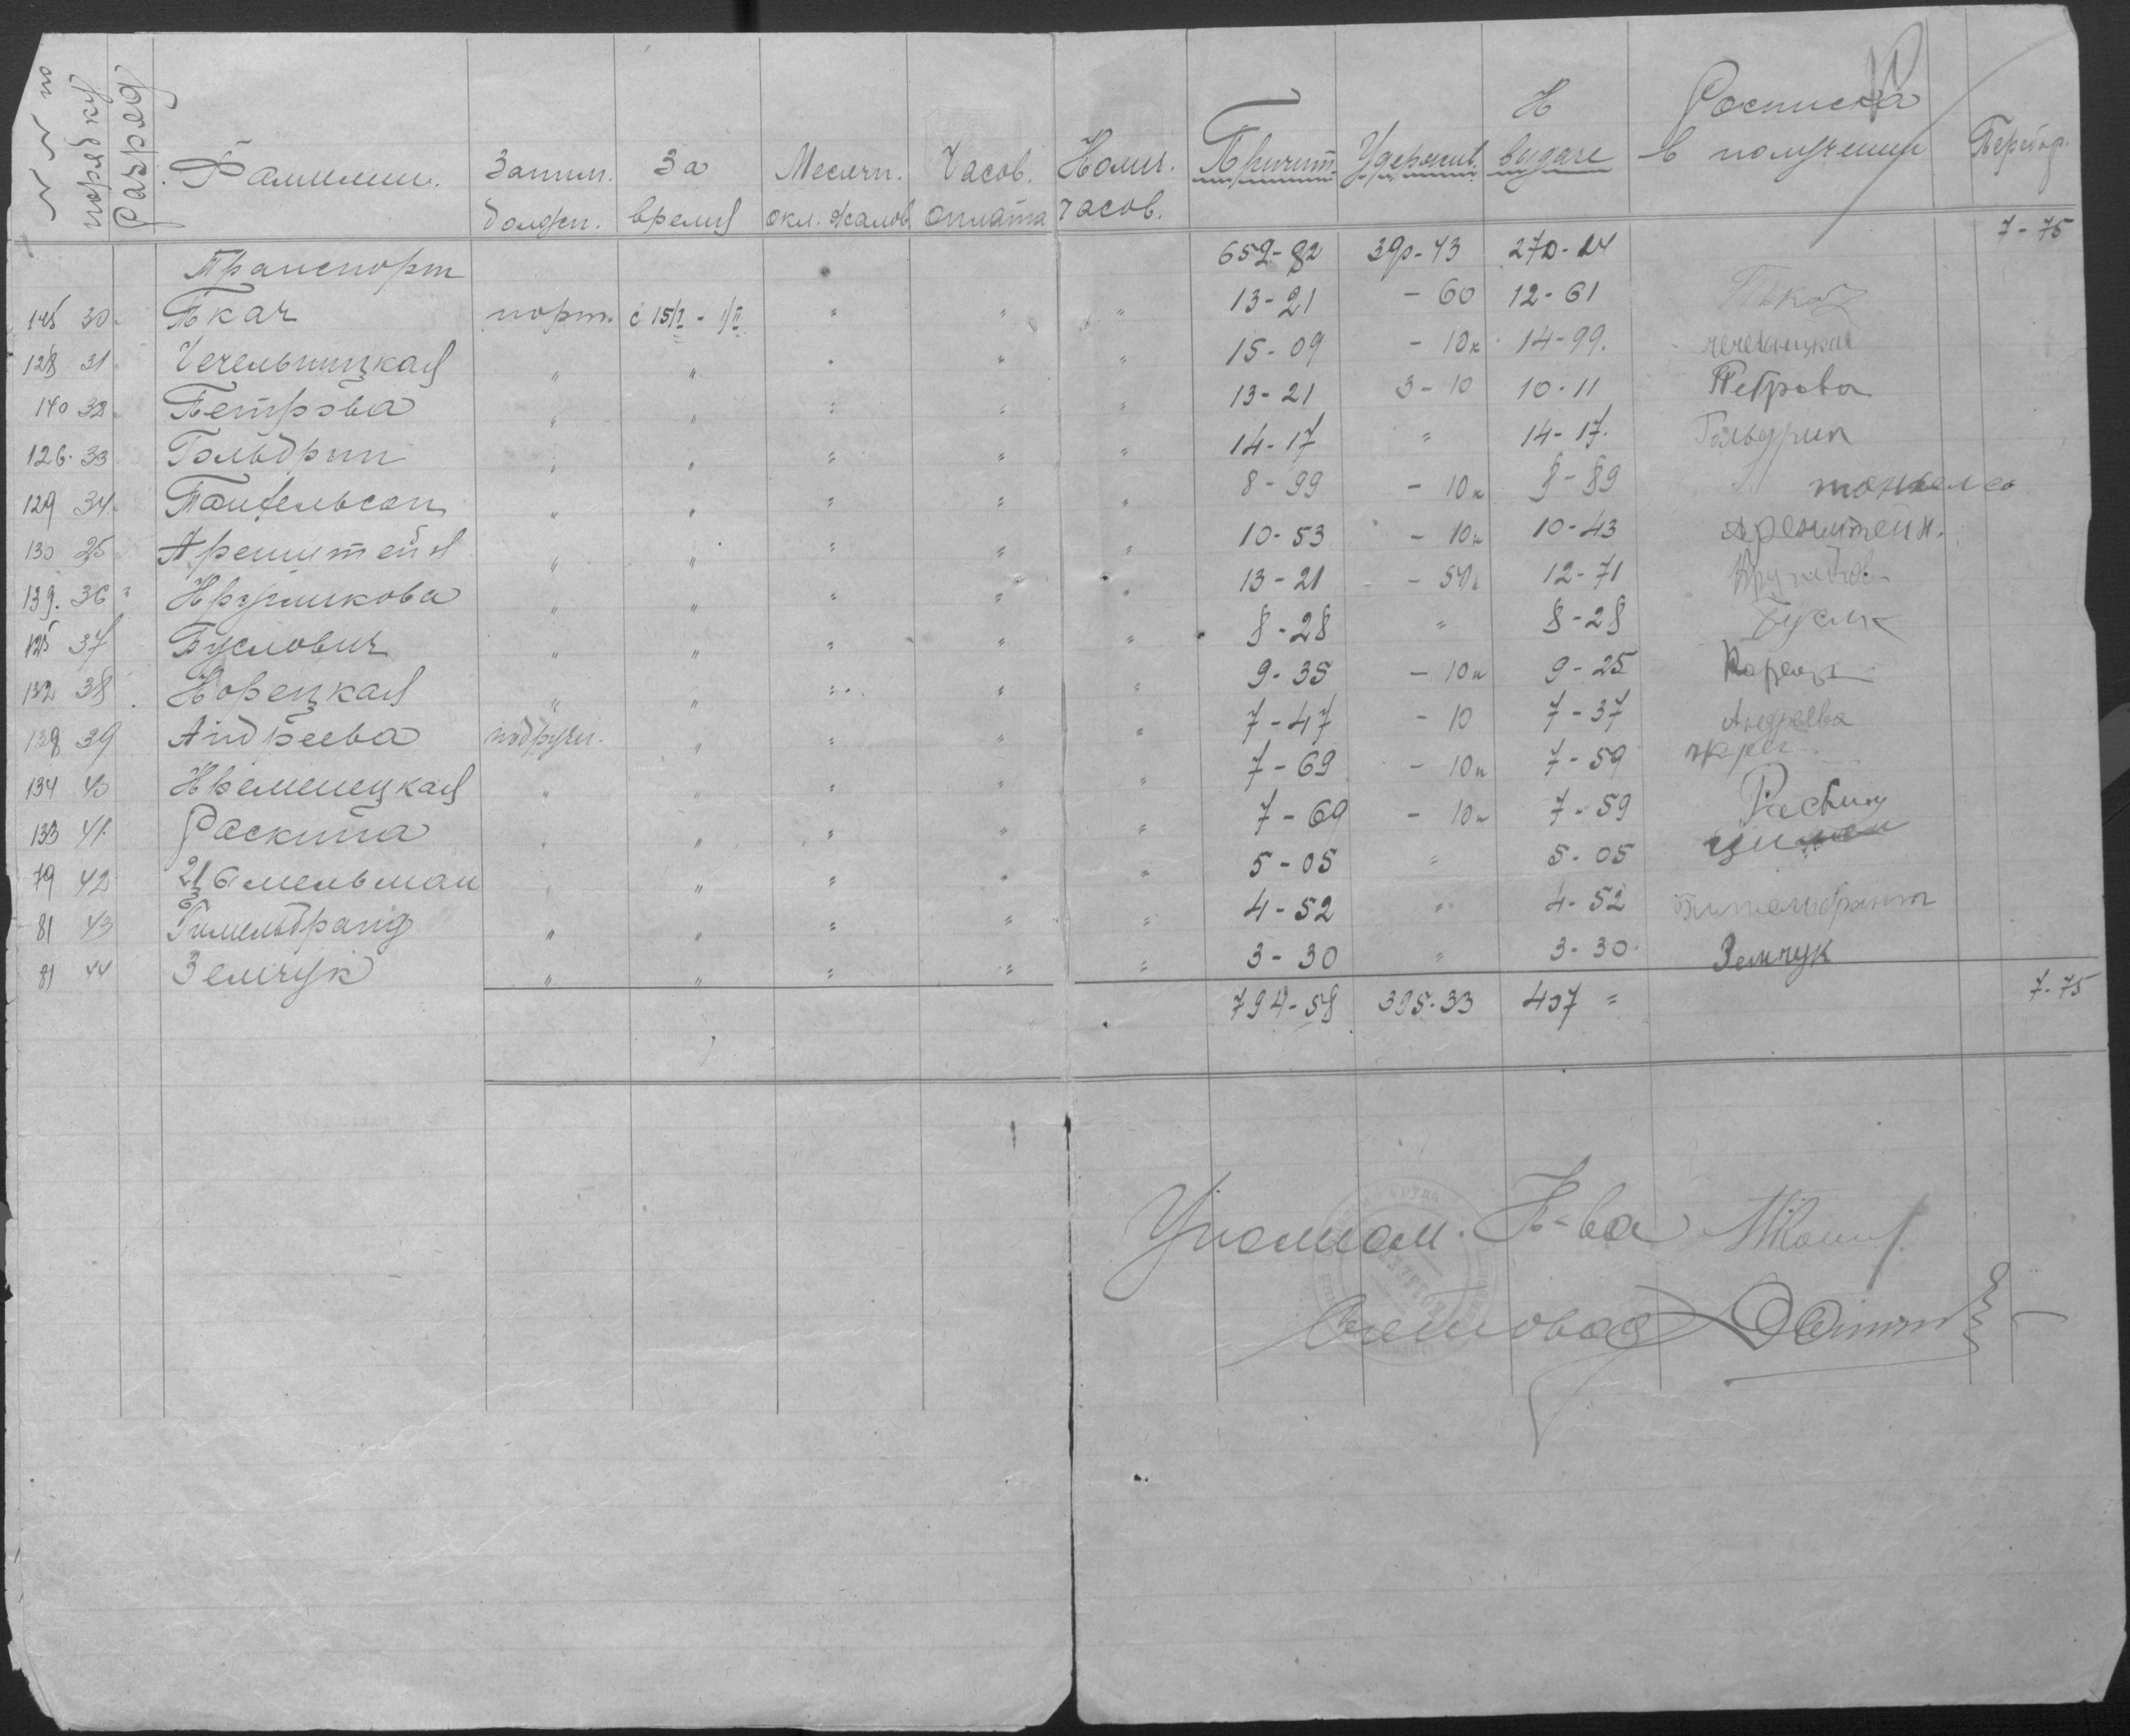 № № по порядку
Разряд
Фамилии.
Заним. должн.
За время
Месячн. окл. жалов.
Часов. оплата
Колич. часов.
Причит.
Удержив.
К выдаче
Росписка в получении
Перебор.
Транспорт 652-82 390-43 270-14 7-75
145 30 Ткач порт. с 15/I - 1/II " " " 13-21 - 60 12-61 Ткач
128 31 Чечельницкая " " " " " 15-09 - 10к 14-99. Чечельницкая
140 32 Петрова " " " " " 13-21 3-10 10-11 Петрова
126. 33 Гольдрин " " " " " 14-17 " 14-17. Гольдрин
129 34 " " " " " 8-99 - 10к 8-89
130 35 Аренштейн " " " " " 10-53 - 10к 10-43 Аренштейн.
139. 36 Кругликова " " " " " 13-21 - 50к 12-71
125 37 Буслович " " " " " 8-28 " 8-28
132 38 Корецкая " " " " " 9-35 - 10к 9-25
138 39 Андреева подручн. " " " " 7-47 - 10 7-37 Андреева
134 40 Кременецкая " " " " " 7-69 - 10к 7-59
133 41. Раскина " " " " " 7-69 - 10к 7-59 Раскин
79 42 " " " " " 5-05 " 5-05
81 43 Гимельбранд " " " " " 4-52 " 4-52
81 44 Земчук " " " " " 3-30 " 3-30 Земчук
794-58 395-33 407 = 7-75
Уполном. К-ва
Счетовод